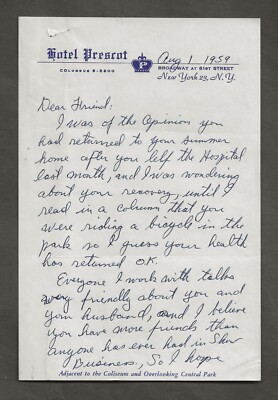 Hotel Prescot
P
Aug 1 1959
COLUMBUS 5-8800
BROADWAY at 61ST STREET
New York 23, N.Y.
Dear Friend:
I was of the Opinion you
had returned to your summer
home after you left the Hospital
last month, and I was wondering
about your recovery, until I
read in a column that you
were riding a bicycle in the
park so I guess your health
has returned OK.
Everyone I work with talks
very friendly about you and
your husband, and I believe
you have more friends than
anyone has ever had in Show
Business, So I hope
Adjacent to the Coliseum and Overlooking Central Park